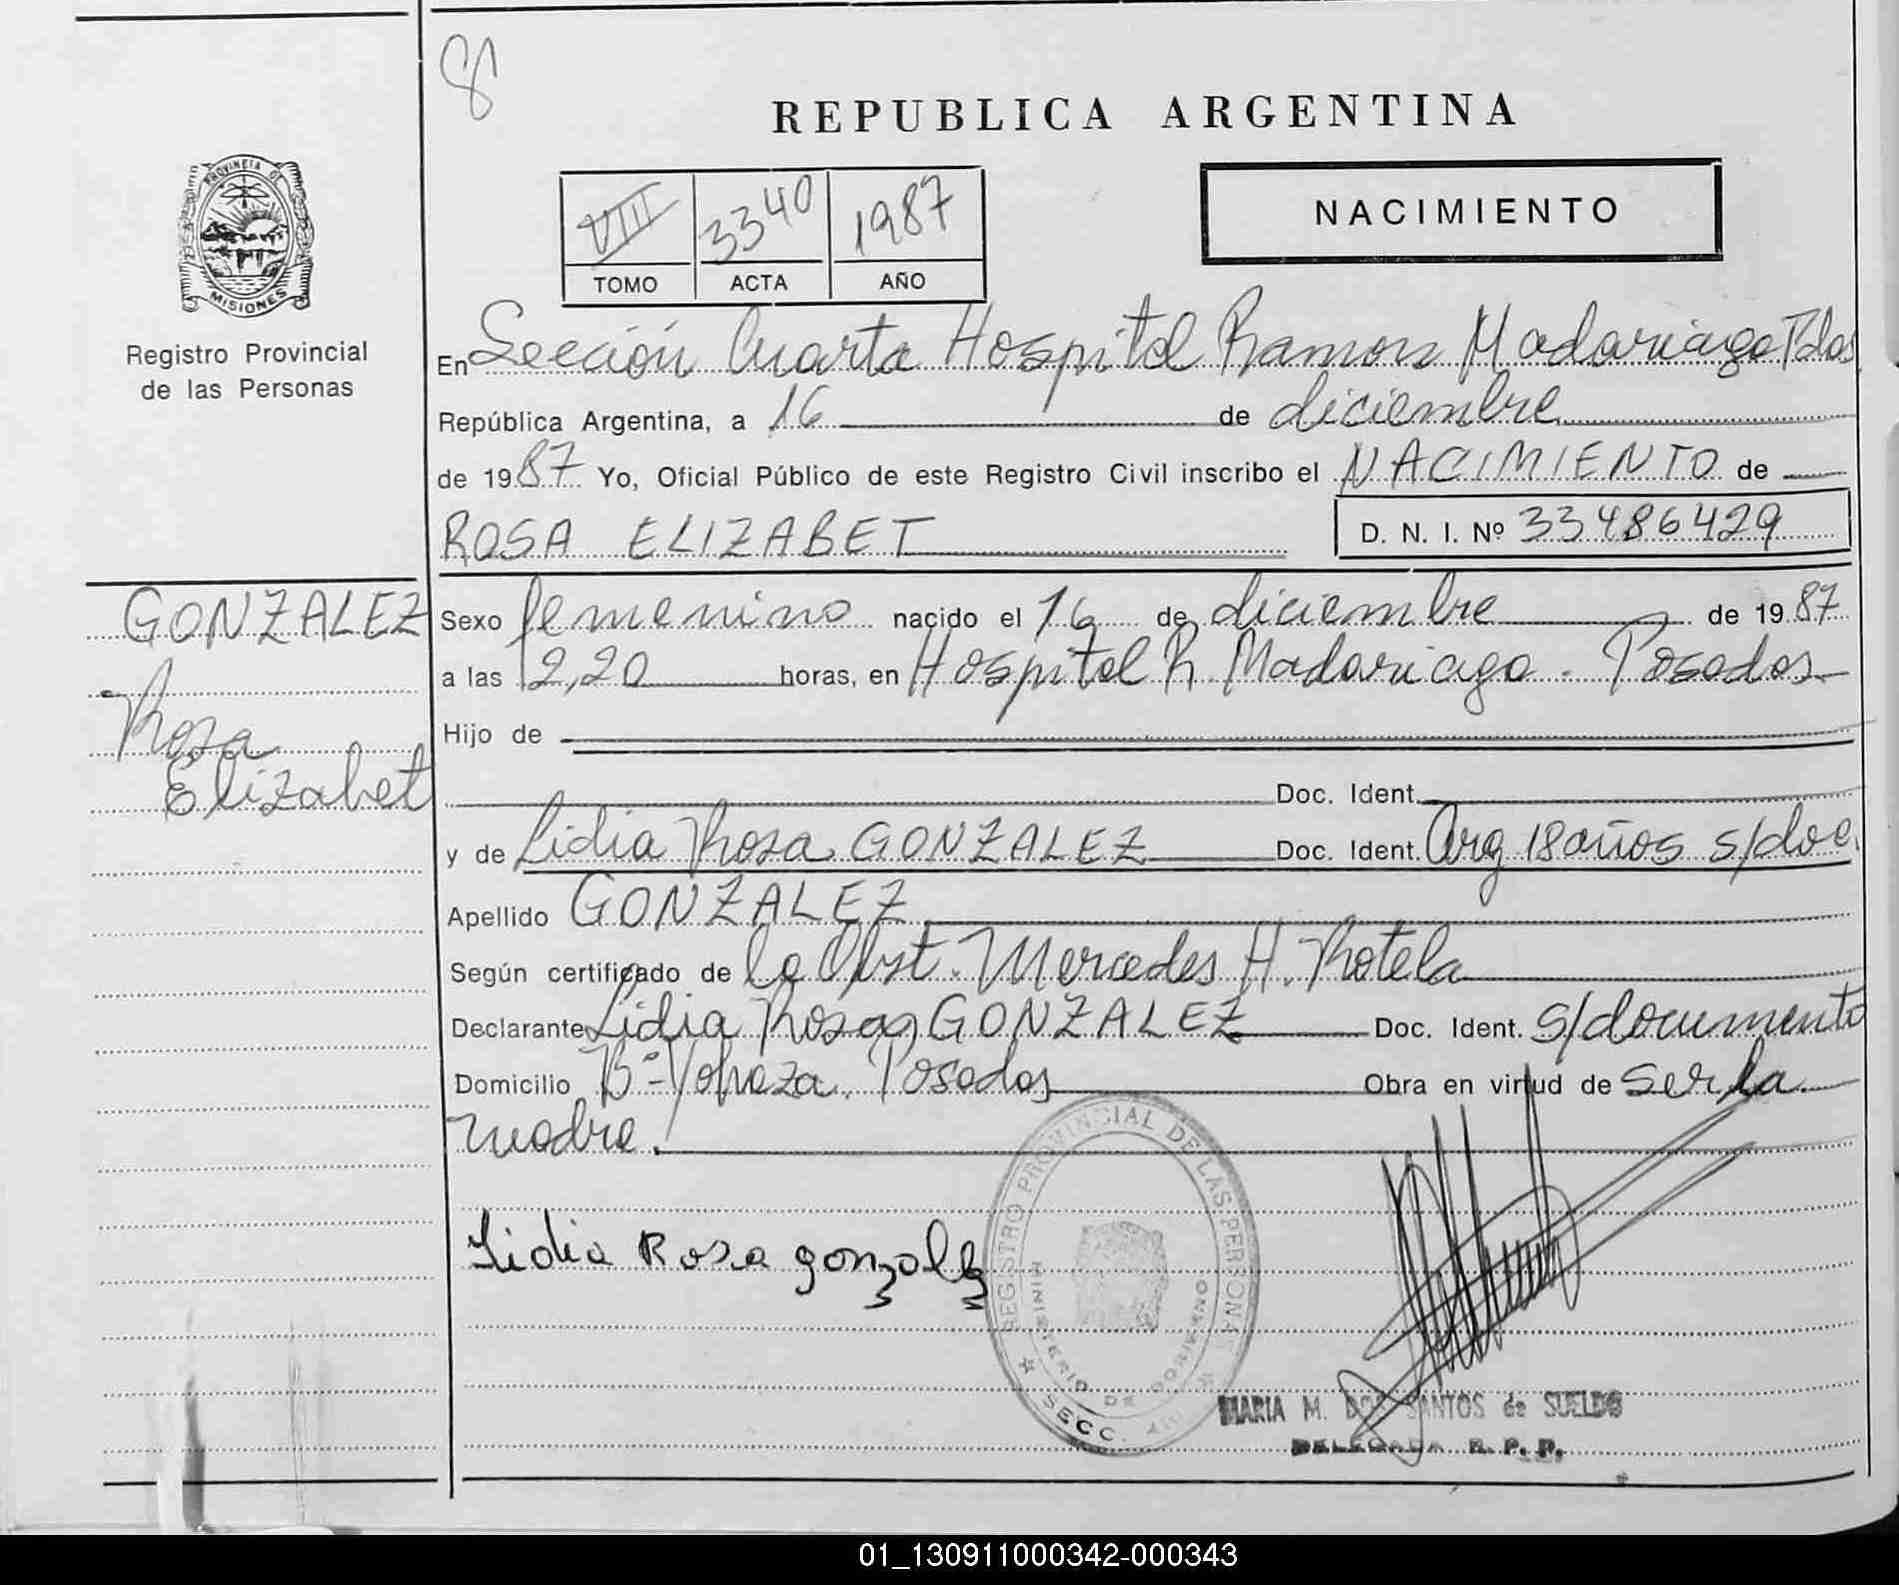 8
REPUBLICA ARGENTINA
PROVINCIA DE
MISIONES
Registro Provincial
de las Personas
VIII 3340 1987
TOMO ACTA AÑO
NACIMIENTO
En Sección Cuarta Hospital Ramon Madariaga Pdas
República Argentina, a 16 de diciembre
de 1987 Yo, Oficial Público de este Registro Civil inscribo el NACIMIENTO de
ROSA ELIZABET D. N. I. Nº 33486429
GONZALEZ
Rosa
Elizabet
Sexo femenino nacido el 16 de diciembre de 1987
a las 12,20 horas, en Hospital R. Madariaga. Posadas
Hijo de
Doc. Ident.
y de Lidia Rosa GONZALEZ Doc. Ident. Arg 18 años s/doc.
Apellido GONZALEZ
Según certificado de la Obst. Mercedes H. Rotela
Declarante Lidia Rosa GONZALEZ Doc. Ident. s/documento
Domicilio Bº Posadas Obra en virtud de ser la
madre.
REGISTRO PROVINCIAL DE LAS PERSONAS
MINISTERIO DE GOBIERNO
SECC.
Lidia Rosa gonzalez
MARIA M. DOS SANTOS de SUELDO
DELEGADA R. P. P.
01_130911000342-000343